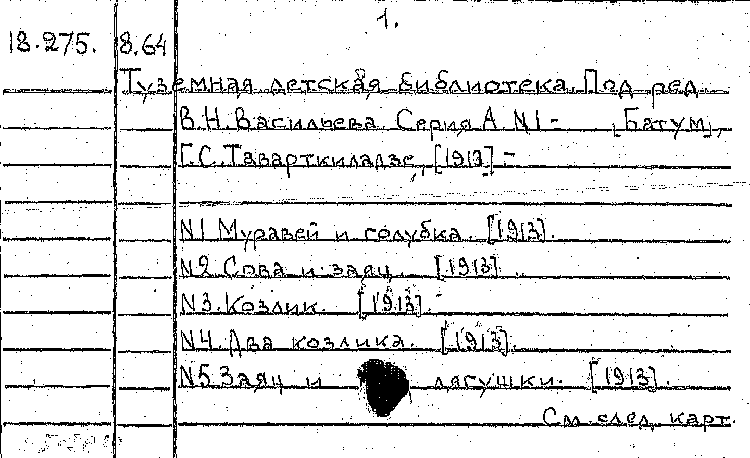 1.
18.275. 8.64
Туземная детская библиотека. Под ред.
В.Н. Васильева. Серия А. N1 - [Батум],
Г.С. Таварткиладзе, [1913] -
N1 Муравей и голубка. [1913].
N2. Сова и заяц. [1913].
N3. Козлик. [1913]. -
N4. Два козлика. [1913].
N5 Заяц и лягушки. [1913].
См. след. карт.